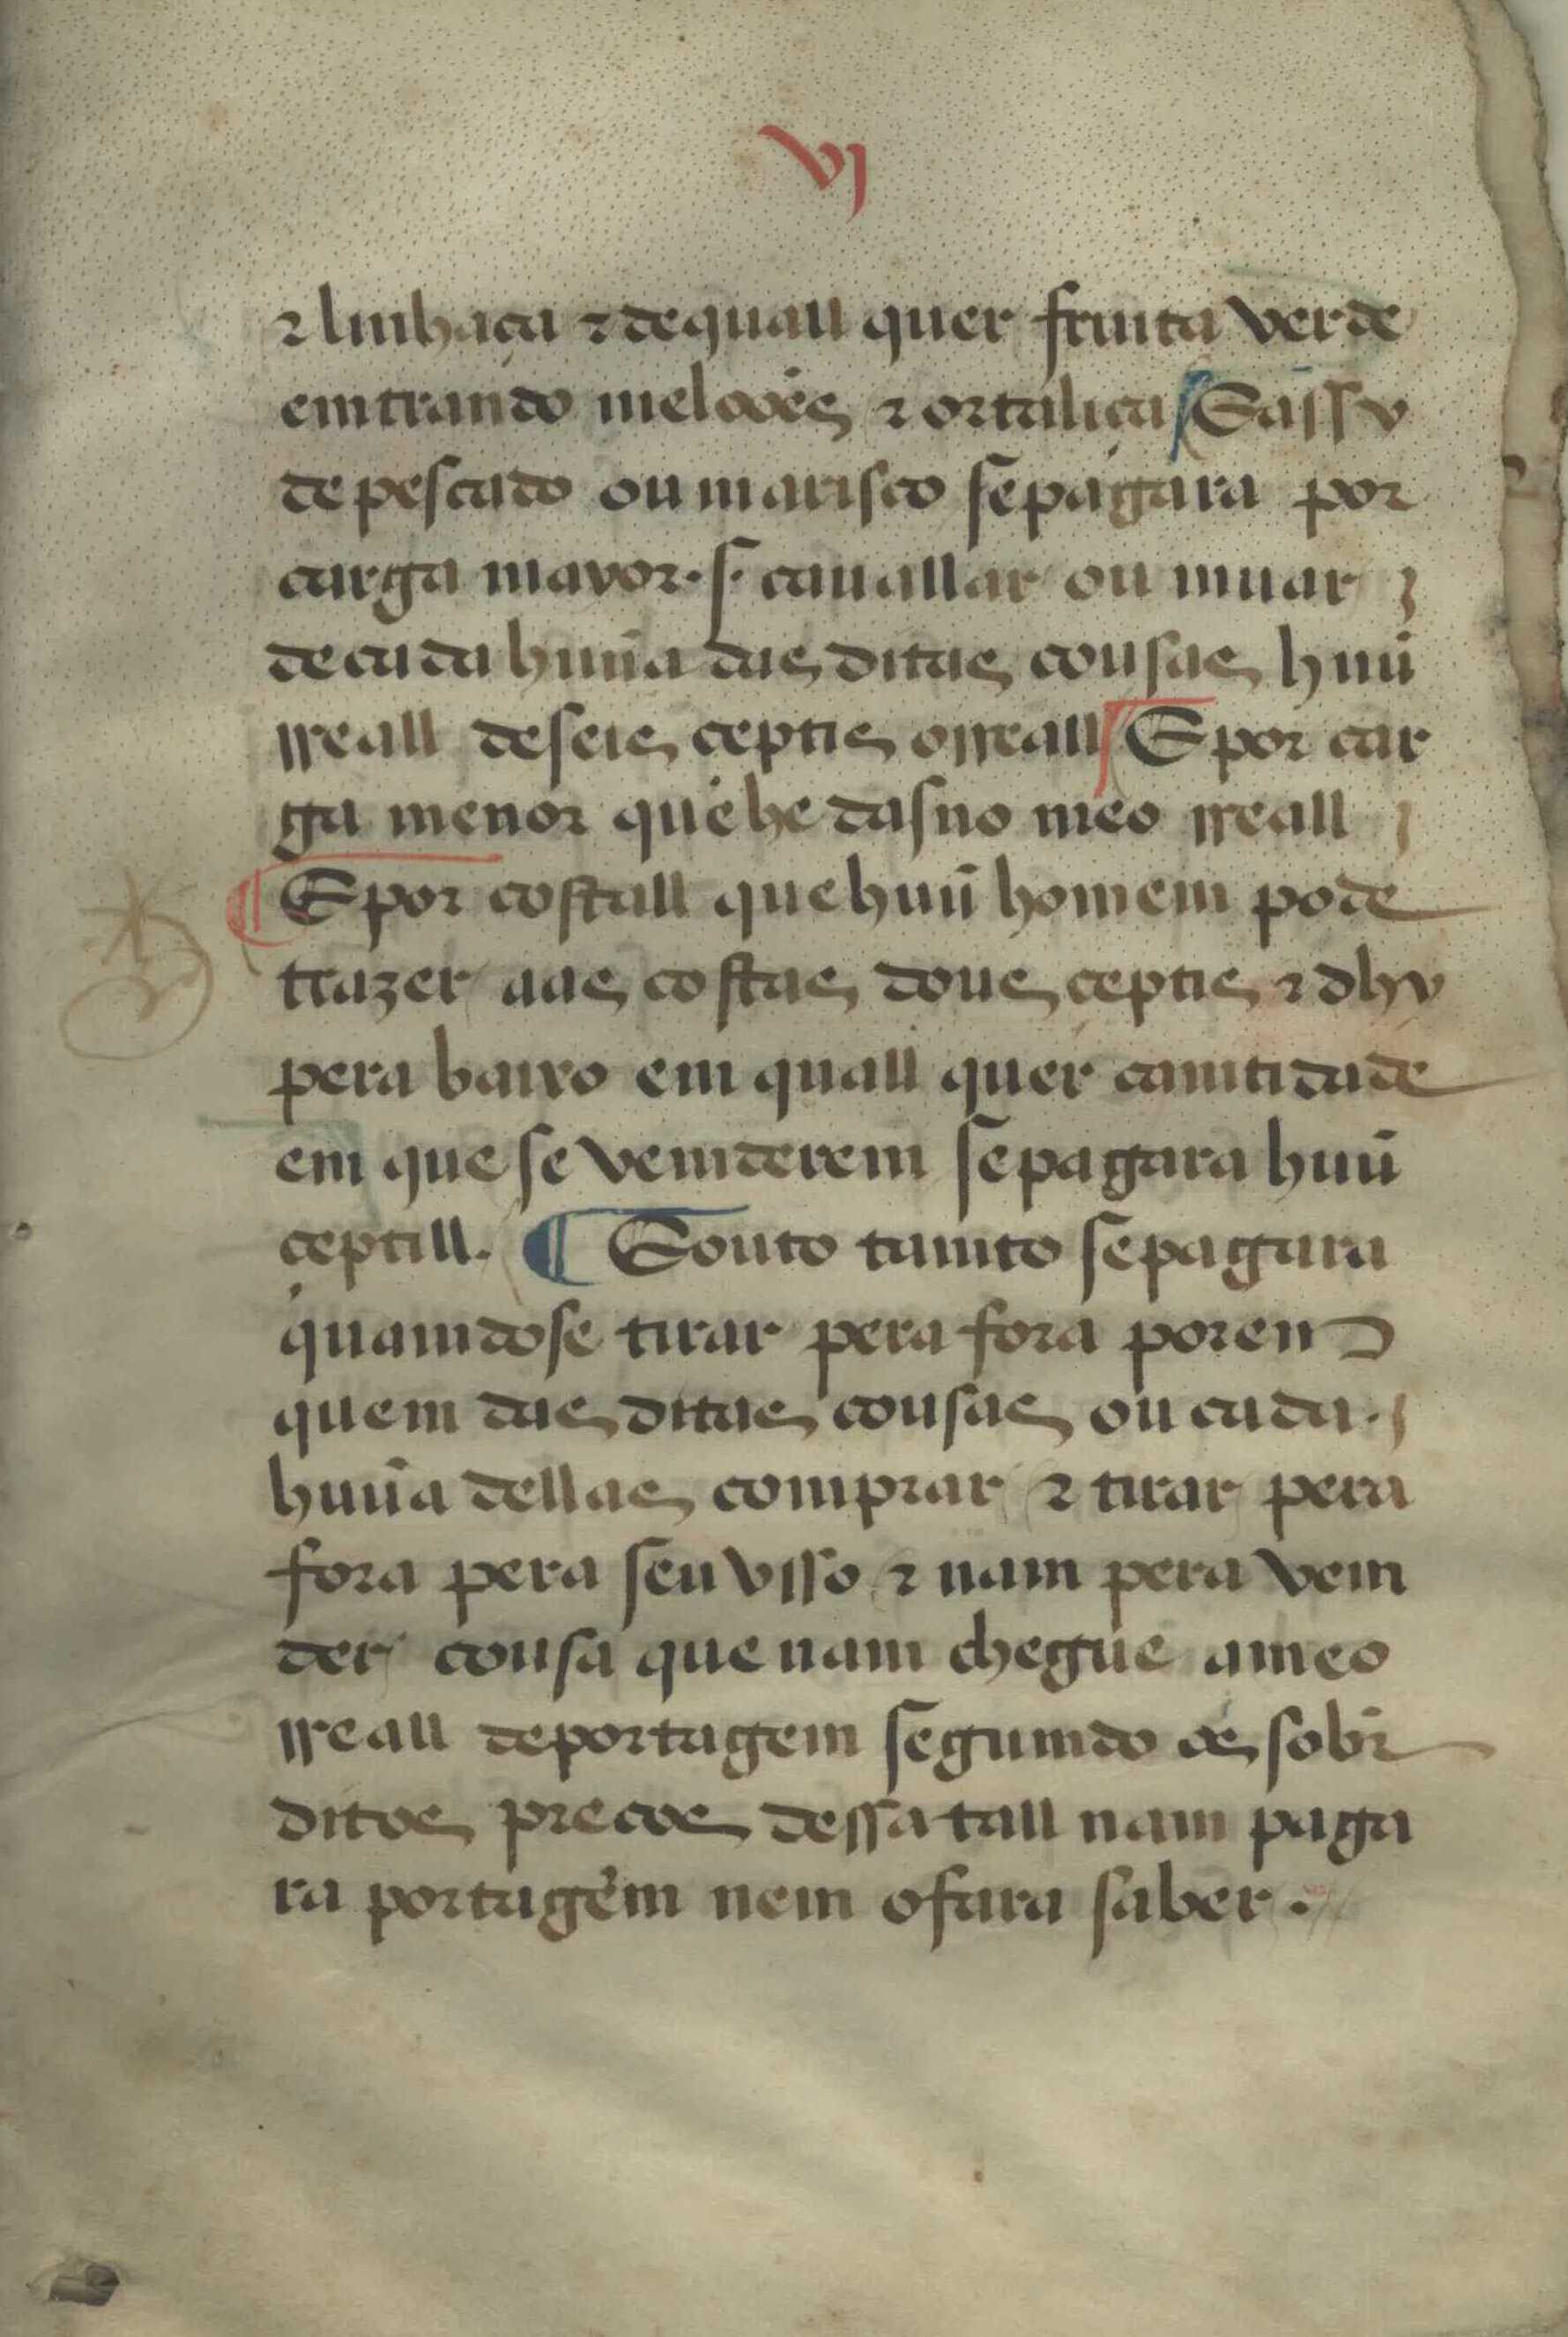 vj
⁊ linhaça ⁊ de quall quer fruita verde
emtrando melooẽs ⁊ ortaliça E assy
de pescado ou marisco se pagara por
carga mayor .s. cauallar ou muar
de cada huũa das ditas cousas huũ
rreall de seis ceptis o rreall E por car
ga menor que he dasno meo rreall
¶ E por costall que huũ homem pode
trazer aas costas dous ceptis ⁊ dhy
pera baixo em quall quer camtidade
em que se vemderem se pagara huũ
ceptill. ¶ E outo tamto se pagara
quamdo se tirar pera fora porem
quem das ditas cousas ou cada
huũa dellas comprar ⁊ tirar pera
fora pera seu vsso ⁊ nam pera vem
der cousa que nam chegue a meo
rreall de portagem segumdo os sobr̃
ditos precos dessa tall nam paga
ra portagem nem o fara saber.